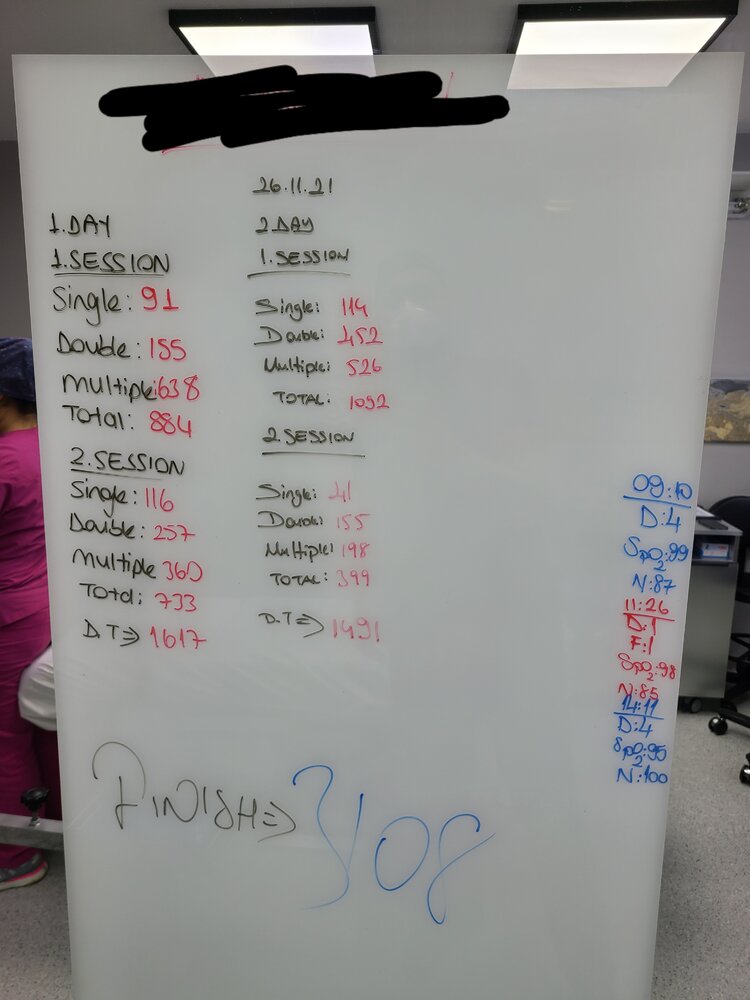 26.11.21
1.DAY
1.SESSION
Single: 91
Double: 155
Multiple: 638
Total: 884
2.SESSION
Single: 116
Double: 257
Multiple 360
Total: 733
D.T⇒ 1617
2.DAY
1.SESSION
Single: 114
Double: 452
Multiple: 526
TOTAL: 1092
2.SESSION
Single: 41
Double: 155
Multiple: 198
TOTAL: 399
D.T⇒ 1491
FINISH⇒ 3108
09:10
D:4
SpO₂:99
N:87
11:26
D:1
F:1
SpO₂:98
N:85
14:11
D:4
SpO₂:95
N:100